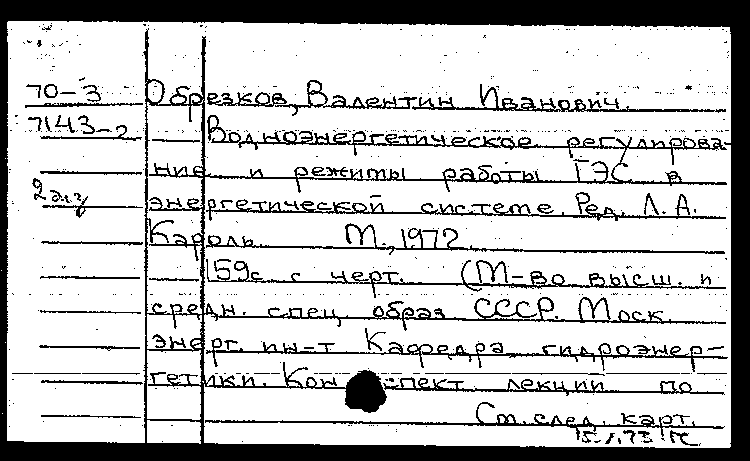 70-3 Обрезков, Валентин Иванович.
7143-2 Водноэнергетическое регулирова-
ние и режимы работы ГЭС в
2 экз энергетической системе. Ред. Л. А.
Кароль М., 1972
159с с черт. (М-во высш. и
средн. спец образ СССР. Моск.
энерг. ин-т Кафедра гидроэнер-
гетики. Конспект лекции по
См. след. карт.
15.1.73